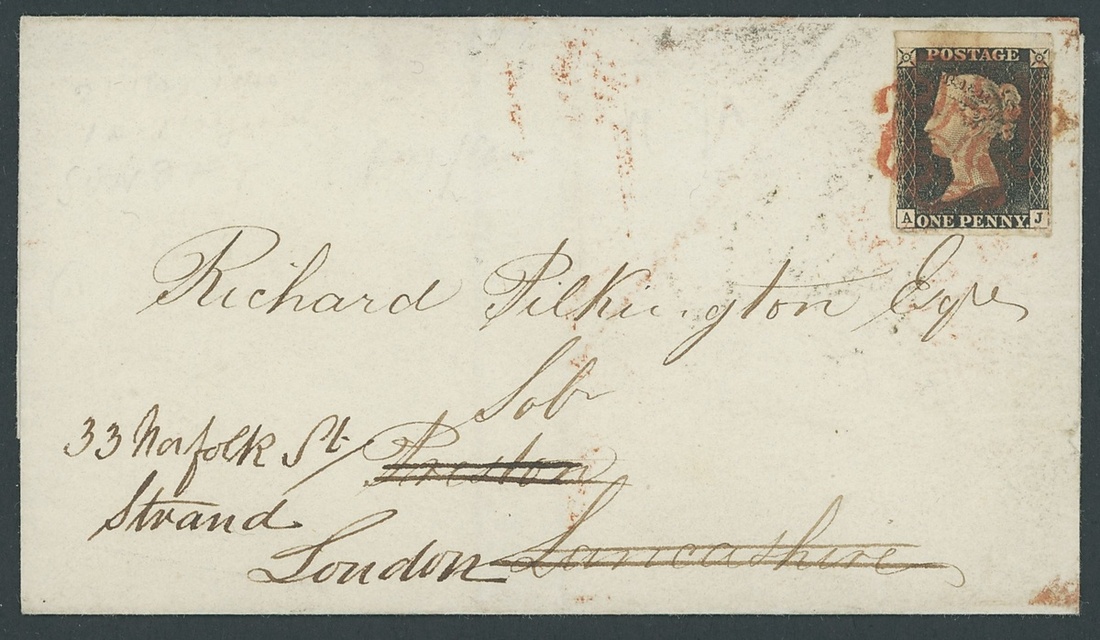 POSTAGE
A ONE PENNY. J
Richard Pilkington Esqre
Solr
Preston
Lancashire
33 Norfolk St
Strand
London